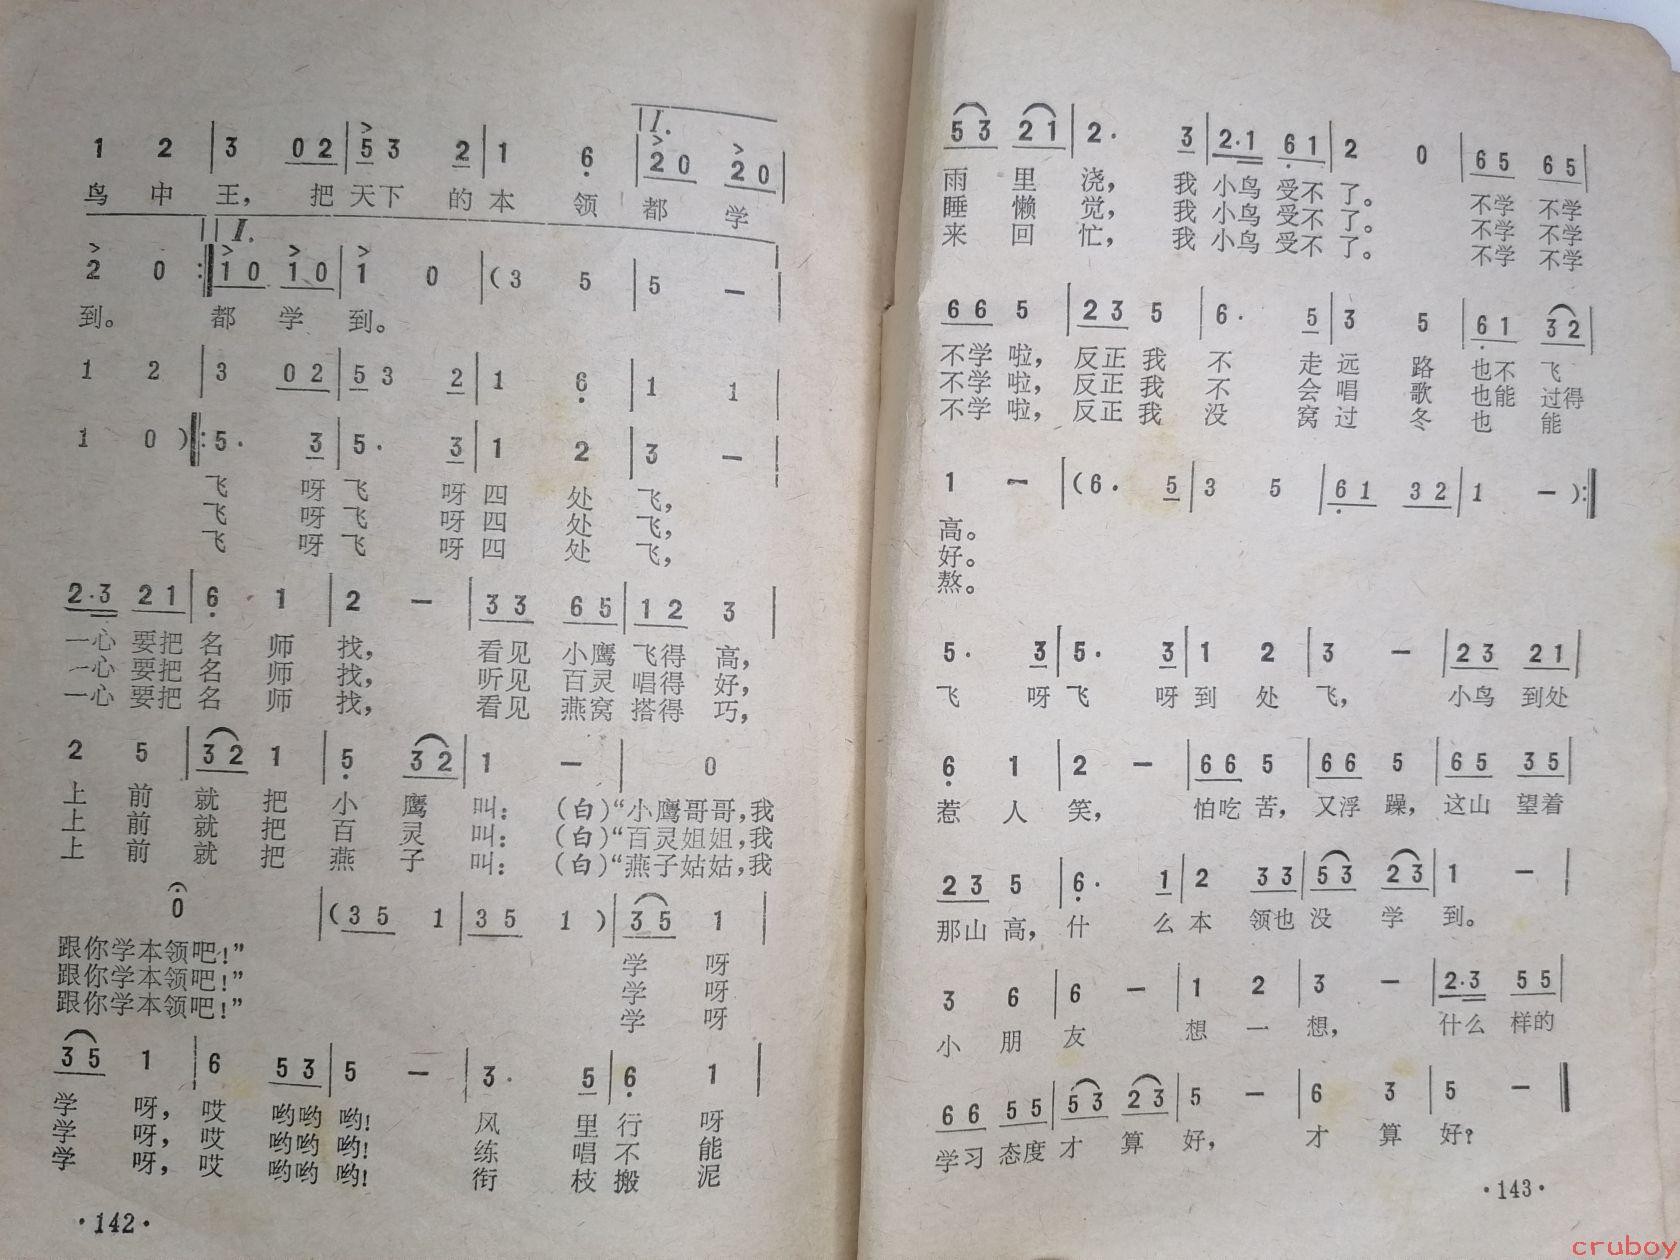 I.
1 2 | 3 0 2 | 5 3 2 | 1 6 | 2 0 2 0 |
鸟 中 王， 把 天下 的 本 领 都 学
II.
2 0 :| 1 0 1 0 | 1 0 | (3 5 | 5 — |
到。 都 学 到。
1 2 | 3 0 2 | 5 3 2 | 1 6 | 1 1 |
1 0 ):| 5· 3 | 5· 3 | 1 2 | 3 — |
飞 呀 飞 呀 四 处 飞，
飞 呀 飞 呀 四 处 飞，
飞 呀 飞 呀 四 处 飞，
2·3 2 1 | 6 1 | 2 — | 3 3 6 5 | 1 2 3 |
一心 要把 名 师 找， 看见 小鹰 飞得 高，
一心 要把 名 师 找， 听见 百灵 唱得 好，
一心 要把 名 师 找， 看见 燕窝 搭得 巧，
2 5 | 3 2 1 | 5 3 2 | 1 — | 0
上 前 就 把 小 鹰 叫： (白)“小鹰哥哥，我
上 前 就 把 百 灵 叫： (白)“百灵姐姐，我
上 前 就 把 燕 子 叫： (白)“燕子姑姑，我
0 | (3 5 1 | 3 5 1 ) | 3 5 1 |
跟你学本领吧！” 学 呀
跟你学本领吧！” 学 呀
跟你学本领吧！” 学 呀
3 5 1 | 6 5 3 | 5 — | 3· 5 | 6 1 |
学 呀， 哎 哟哟 哟！ 风 里 行 呀
学 呀， 哎 哟哟 哟！ 练 唱 不 能
学 呀， 哎 哟哟 哟！ 衔 枝 搬 泥
·142·
5 3 2 1 | 2· 3 | 2·1 6 1 | 2 0 | 6 5 6 5 |
雨 里 浇， 我 小鸟 受不 了。 不学 不学
睡 懒 觉， 我 小鸟 受不 了。 不学 不学
来 回 忙， 我 小鸟 受不 了。 不学 不学
6 6 5 | 2 3 5 | 6· 5 | 3 5 | 6 1 3 2 |
不学 啦， 反正 我 不 走 远 路 也不 飞
不学 啦， 反正 我 不 会 唱 歌 也能 过得
不学 啦， 反正 我 没 窝 过 冬 也 能
1 — | (6· 5 | 3 5 | 6 1 3 2 | 1 — ):|
高。
好。
熬。
5· 3 | 5· 3 | 1 2 | 3 — | 2 3 2 1 |
飞 呀 飞 呀 到 处 飞， 小鸟 到处
6 1 | 2 — | 6 6 5 | 6 6 5 | 6 5 3 5 |
惹 人 笑， 怕吃 苦， 又浮 躁， 这山 望着
2 3 5 | 6· 1 | 2 3 3 | 5 3 2 3 | 1 — |
那山 高， 什 么 本 领也 没 学 到。
3 6 | 6 — | 1 2 | 3 — | 2·3 5 5 |
小 朋 友 想 一 想， 什么 样的
6 6 5 5 | 5 3 2 3 | 5 — | 6 3 | 5 — ‖
学习 态度 才 算 好， 才 算 好？
·143·
cruboy